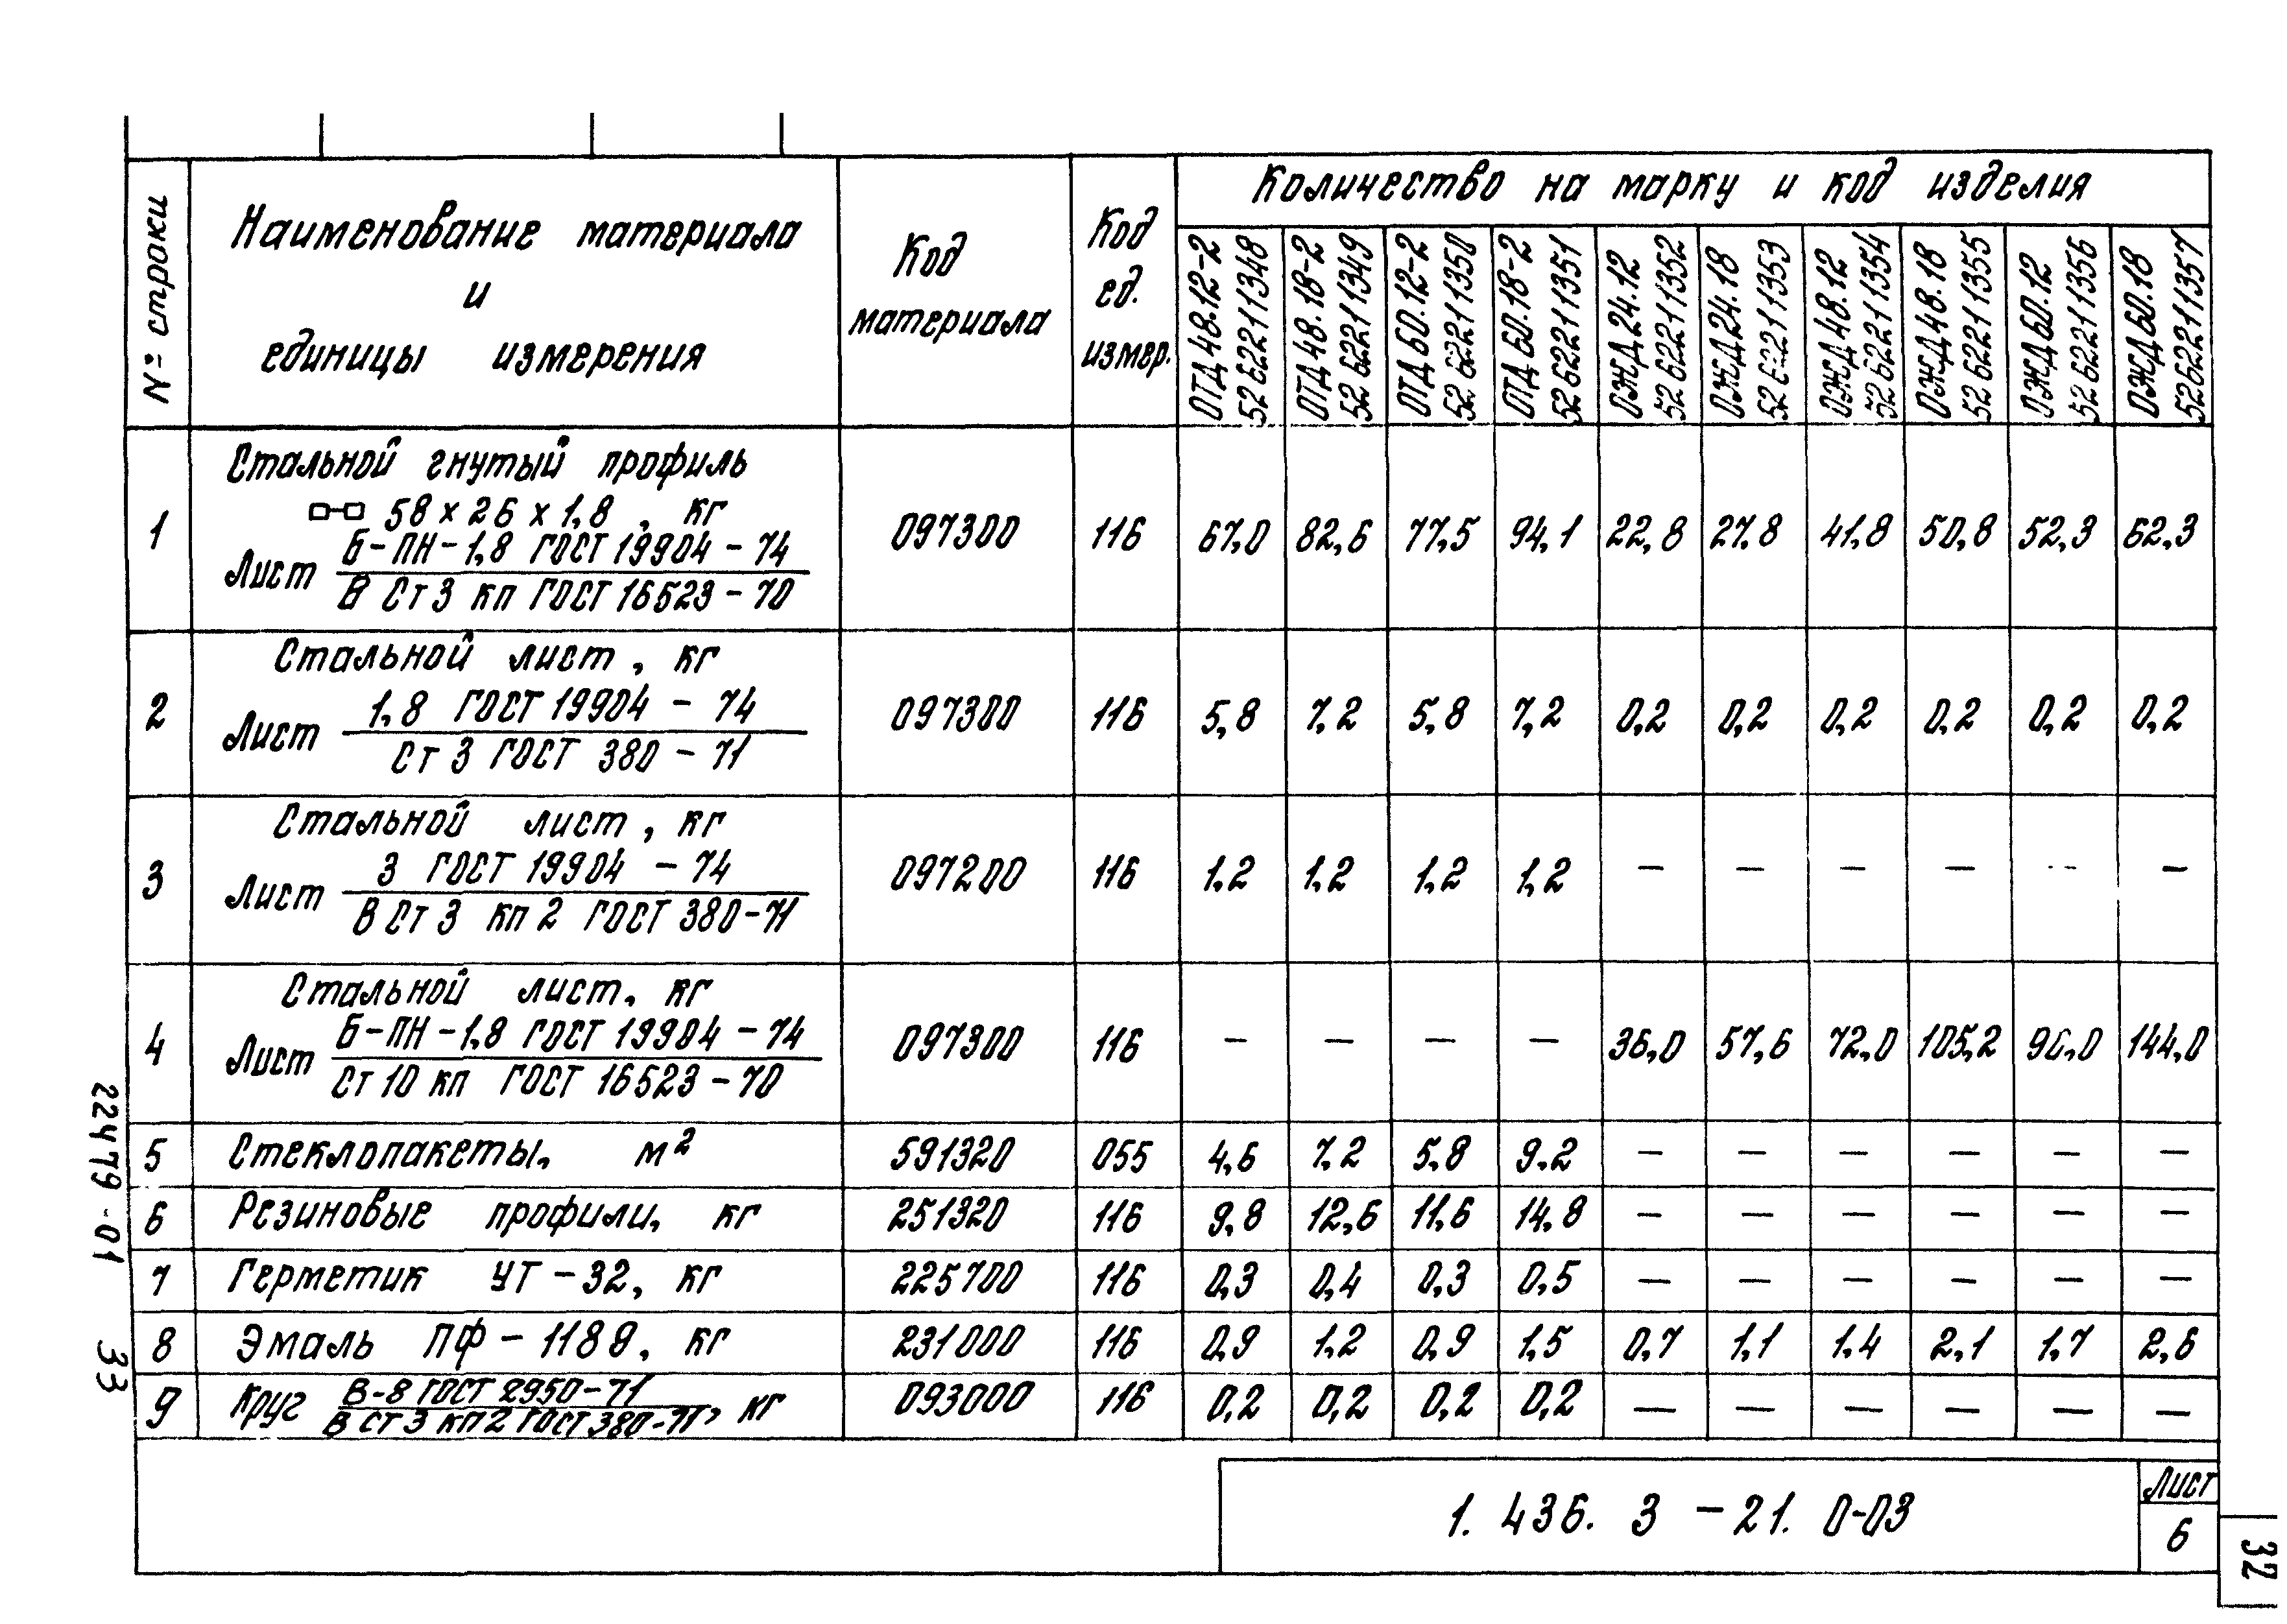 № строки
Наименование материала
и
единицы измерения
Код
материала
Код
ед.
измер.
Количество на марку и код изделия
ОТД 48.12-2
52 6221 1348
ОТД 48.18-2
52 6221 1349
ОТД 60.12-2
52 6221 1350
ОТД 60.18-2
52 6221 1351
ОЖД 24.12
52 6221 1352
ОЖД 24.18
52 6221 1353
ОЖД 48.12
52 6221 1354
ОЖД 48.18
52 6221 1355
ОЖД 60.12
52 6221 1356
ОЖД 60.18
52 6221 1357
1
Стальной гнутый профиль
58 х 26 х 1,8 , кг
Лист
Б-ПН-1,8 ГОСТ 19904 - 74
В Ст 3 кп ГОСТ 16523 - 70
097300 116 67,0 82,6 77,5 94,1 22,8 27,8 41,8 50,8 52,3 62,3
2
Стальной лист, кг
Лист
1,8 ГОСТ 19904 - 74
Ст 3 ГОСТ 380 - 71
097300 116 5,8 7,2 5,8 7,2 0,2 0,2 0,2 0,2 0,2 0,2
3
Стальной лист, кг
Лист
3 ГОСТ 19904 - 74
В Ст 3 кп 2 ГОСТ 380-71
097200 116 1,2 1,2 1,2 1,2 — — — — — —
4
Стальной лист, кг
Лист
Б-ПН-1,8 ГОСТ 19904 - 74
Ст 10 кп ГОСТ 16523 - 70
097300 116 — — — — 36,0 57,6 72,0 105,2 96,0 144,0
5 Стеклопакеты, м² 591320 055 4,6 7,2 5,8 9,2 — — — — — —
6 Резиновые профили, кг 251320 116 9,8 12,6 11,6 14,8 — — — — — —
7 Герметик УТ-32, кг 225700 116 0,3 0,4 0,3 0,5 — — — — — —
8 Эмаль ПФ-1189, кг 231000 116 0,9 1,2 0,9 1,5 0,7 1,1 1,4 2,1 1,7 2,6
9 Круг
В-8 ГОСТ 2950-71
В Ст 3 кп 2 ГОСТ 380-71, кг
093000 116 0,2 0,2 0,2 0,2 — — — — — —
22479-01 33
1. 436. 3 - 21. 0-03
Лист
6
32